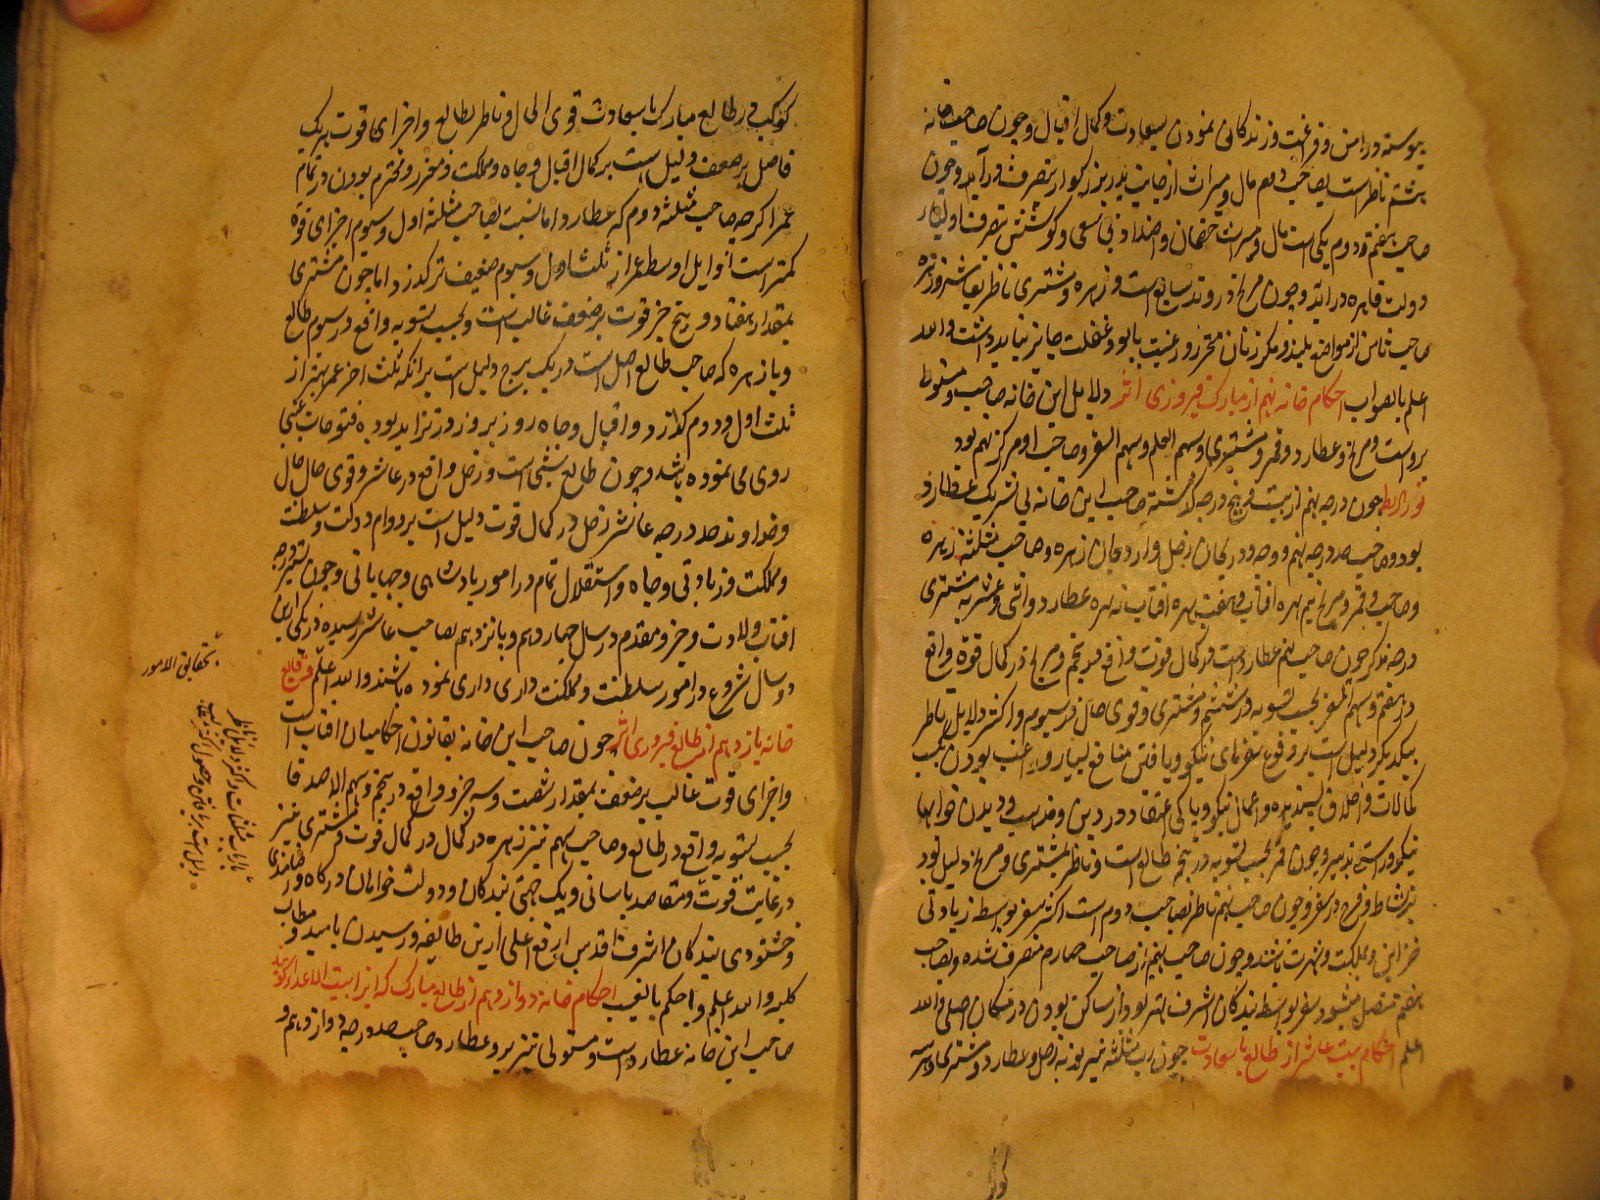 پیوسته در امن و فراغت و زندگانی نمودن بسعادت و کمال اقبال و چون صاحب خانه
هشتم ناظر است بصاحب دوم مال و میراث از جانب پدر بزرگوار بتصرف در آید و چون
صاحب هفتم و دوم یکی است مال و میراث خصمان و اضداد بی سعی و کوشش بتصرف اولیاء
دولت قاهره در آید و چون مریخ در وتد سابع است و زهره و مشتری ناظر
صاحب ثامن از مواضع بلند و مکر زنان محترز و رغبت باید بود و غفلت جایز نباید داشت والله
اعلم بالصواب احکام خانه نهم از مبارک فیروزی اثر دلایل این خانه صاحب و مستولی
بر وی است و مریخ و عطارد و قمر و مشتری و سهم العلم و سهم السفر و صاحب او مرکز نهم بود
چون درجه نهم از بیست و پنج درجه گذشته صاحب این خانه بی شریک عطارد
بود و صاحب حد درجه نهم و وجه و دریجان زحل و اردجان زهره و صاحب مثلثه زهره
و صاحب و قمر و مریخ نیم بهره آفتاب و هفت بهره آفتاب نه بهره عطارد و اثنی عشریه مشتری
درجه مذکر چون صاحب نهم عطارد است در کمال قوت واقع در پنجم و مریخ در کمال قوة واقع
در هفتم و سهم السفر بحسب تسویه در ششم و مشتری و قوی حال در سیوم و اکثر دلایل ناظر
بیکدیگر دلیل است بر وقوع سفرهای نیکو و یافتن منافع بسیار و راغب بودن بکسب
کمالات و اخلاق پسندیده و اعمال نیکو و پاکی اعتقاد در دین و مذهب و دیدن خوابها
نیکو و راستی تدبیر و چون قمر بحسب تسویه در پنجم طالع است و ناظر بمشتری و مریخ دلیل بود
بر نشاط و فرح در سفر و چون صاحب نهم ناظر بصاحب دوم است اکثر سفر بواسطه زیادتی
خزاین و مملکت و شهرت باشد و چون صاحب نهم از صاحب چهارم منصرف شده و بصاحب
هفتم متصل میشود سفر بواسطه بندگان اشرف بهتر بود از ساکن بودن در مکان اصلی والله
اعلم احکام بیت عاشر از طالع با سعادت چون رب مثلثه نیر نوبه زحل و عطارد و مشتری و هر سه
کوکب در طالع مبارک با سعادت قوی الحال و ناظر بطالع و اجزای قوت هر یک
فاضل بر ضعف دلیل است بر کمال اقبال و جاه و مملکت و معزز و محترم بودن در تمام
عمر اگر چه صاحب مثلثه دوم که عطارد اما نسبت بصاحب مثلثه اول و سیوم اجزای قوة
کمتر است اوایل اوسط عمر از ثلث اول و سیوم ضعیف تر گذرد اما چون مشتری
بمقدار هفتاد و پنج جزء قوت بر ضعف غالب است و بحسب تسویه واقع در سیوم طالع
و با زهره که صاحب طالع اصل است در یک برج دلیل است بر آنکه ثلث آخر عمر بهتر از
ثلث اول و دوم گذرد و اقبال و جاه روز بروز در تزاید بوده فتوحات غیبی
روی می نموده باشد و چون طالع شبی است و زحل واقع در عاشر و قوی حال
و خداوند حد درجه عاشر زحل در کمال قوت دلیل است بر دوام دولت و سلطنت
و مملکت و زیادتی و جاه و استقلال تمام در امور پادشاهی و جهانبانی و چون تسییر درجه
آفتاب ولادت و جزو مقدم در سال چهاردهم و پانزدهم بصاحب عاشر رسیده در یکی ازین
دو سال شروع در امور سلطنت و مملکت داری نموده باشند والله اعلم وقایع
خانه یازدهم از طالع فیروزی اثر چون صاحب این خانه بقانون احکامیان آفتاب است
و اجزای قوت غالب بر ضعف بمقدار شصت و سه جزء و واقع در پنجم و سهم الاصدقا
بحسب تسویه واقع در طالع و صاحب سهم نیز زهره در کمال قوت و مشتری نیز
در غایت قوت و مقاصد باسانی و یک جهتی بندگان و دولت خواهان درگاه و رضامندی
و خشنودی بندگان اشرف اقدس ارفع اعلی ازین طایفه و رسیدن بامید و مطالب
کلیه والله اعلم و احکم بالغیب احکام خانه دوازدهم از طالع مبارک که انرا بیت الاعدا گویند
صاحب این خانه عطارد است و مستولی نیز بر و عطارد و صاحب حد درجه دوازدهم و
بحقایق الامور